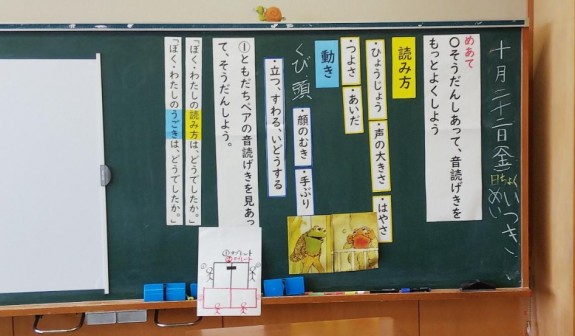 十月二十二日(金)
日ちょく
いつき
めあて
○そうだんしあって、音読げきを
もっとよくしよう
読み方
・ひょうじょう
・声の大きさ
・はやさ
・つよさ
・あいだ
動き
くび
頭
・顔のむき
・手ぶり
・立つ、すわる、いどうする
①ともだちペアの音読げきを見あっ
て、そうだんしよう。
「ぼく・わたしの読み方は、どうでしたか。」
「ぼく・わたしのうごきは、どうでしたか。」